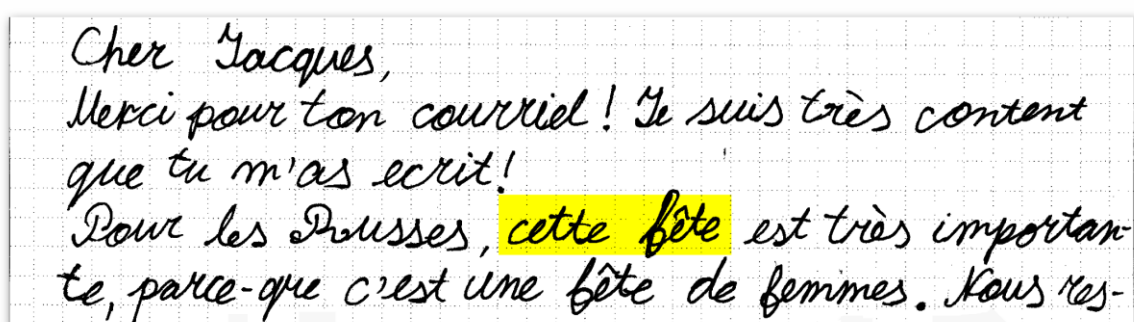 Cher Jacques,
Merci pour ton courriel! Je suis très content
que tu m'as ecrit!
Pour les Russes, cette fête est très importan-
te, parce-que c'est une fête de femmes. Nous res-